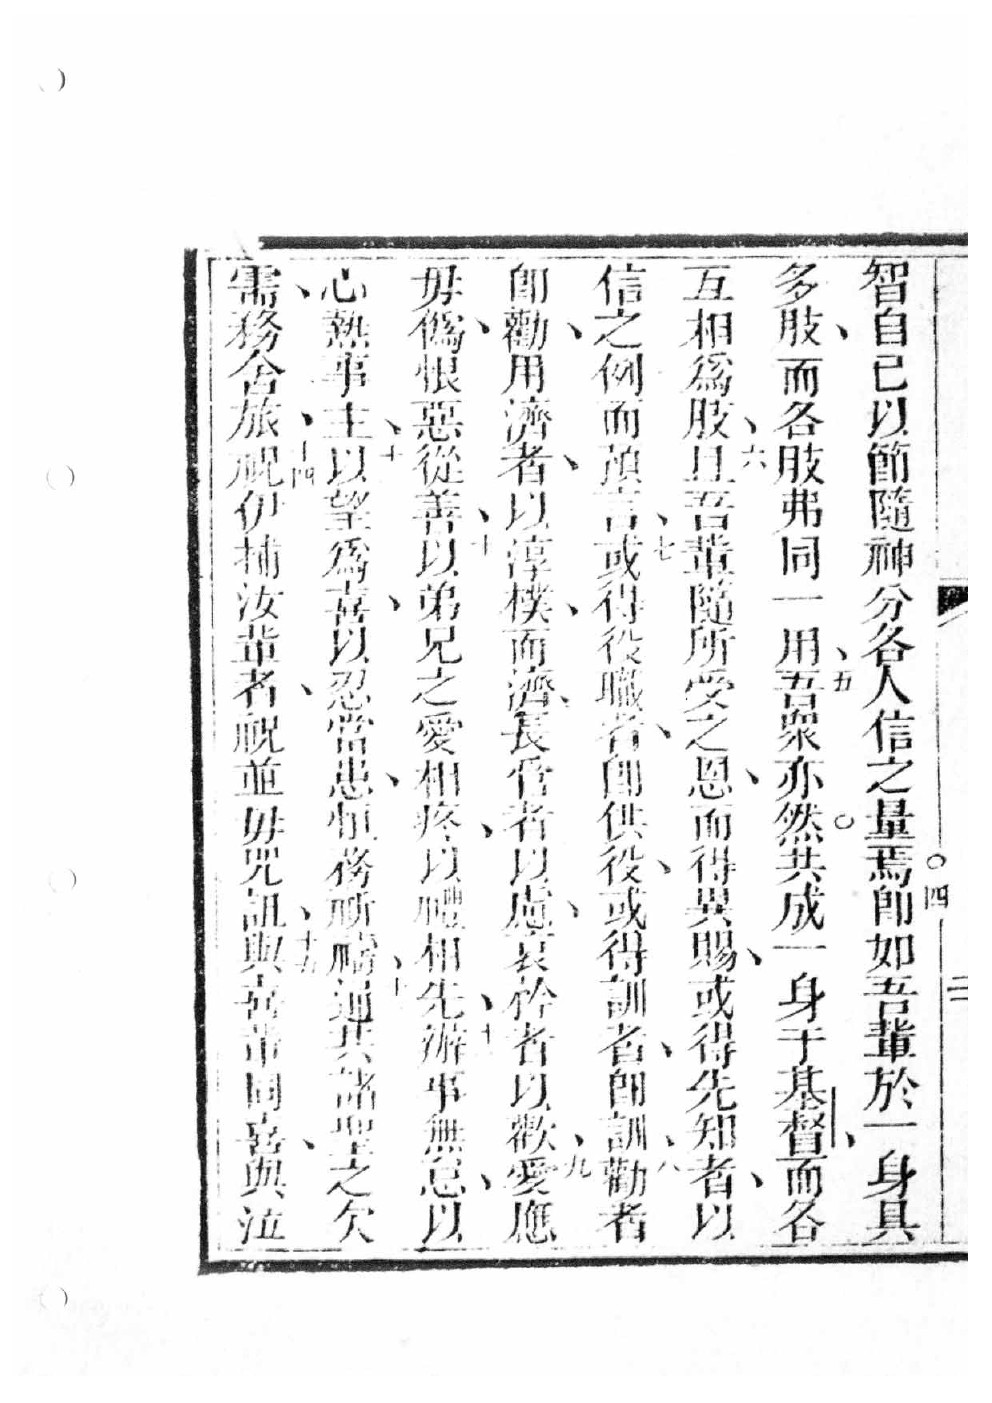 智自已以節隨神分各人信之量焉○四卽如吾輩於一身具
多肢、而各肢弗同一用、五吾衆亦然○共成一身于基督、而各
互相爲肢、六且吾輩隨所受之恩、而得異賜、或得先知者、以
信之例而預言、七或得役職者、卽供役、或得訓者、卽訓、八勸者
卽勸、用濟者、以淳樸、而濟、長督者以慮、哀矜者以歡、九愛應
毋僞、恨惡從善、十以弟兄之愛相疼、以禮相先、十游事無怠、以
心熱事主、十以望爲喜、以忍當患、恒務祈禱、十通共諸聖之欠
需、務舍旅、十四祝伊捕汝輩者、祝並毋咒詛、十五與喜輩同喜、與泣
二